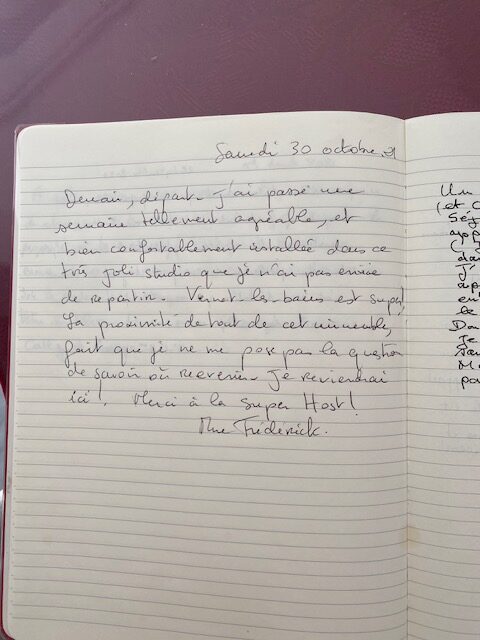 Samedi 30 octobre 21
Demain, départ. J'ai passé une
semaine tellement agréable, et
bien confortablement installée dans ce
très joli studio que je n'ai pas envie
de repartir. Vernet-les-bains est super!
La proximité de tout de cet immeuble,
fait que je ne me pose pas la question
de savoir où revenir. Je reviendrai
ici. Merci à la Super Host!
Mme Frédérick.
Un
(et
Séj
app
dan
J'
ap
en
le
Do
Je
M
pa